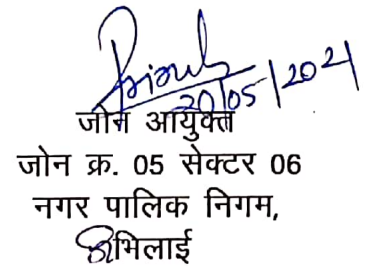 20/05/2021
जोन आयुक्त
जोन क्र. 05 सेक्टर 06
नगर पालिक निगम,
भिलाई